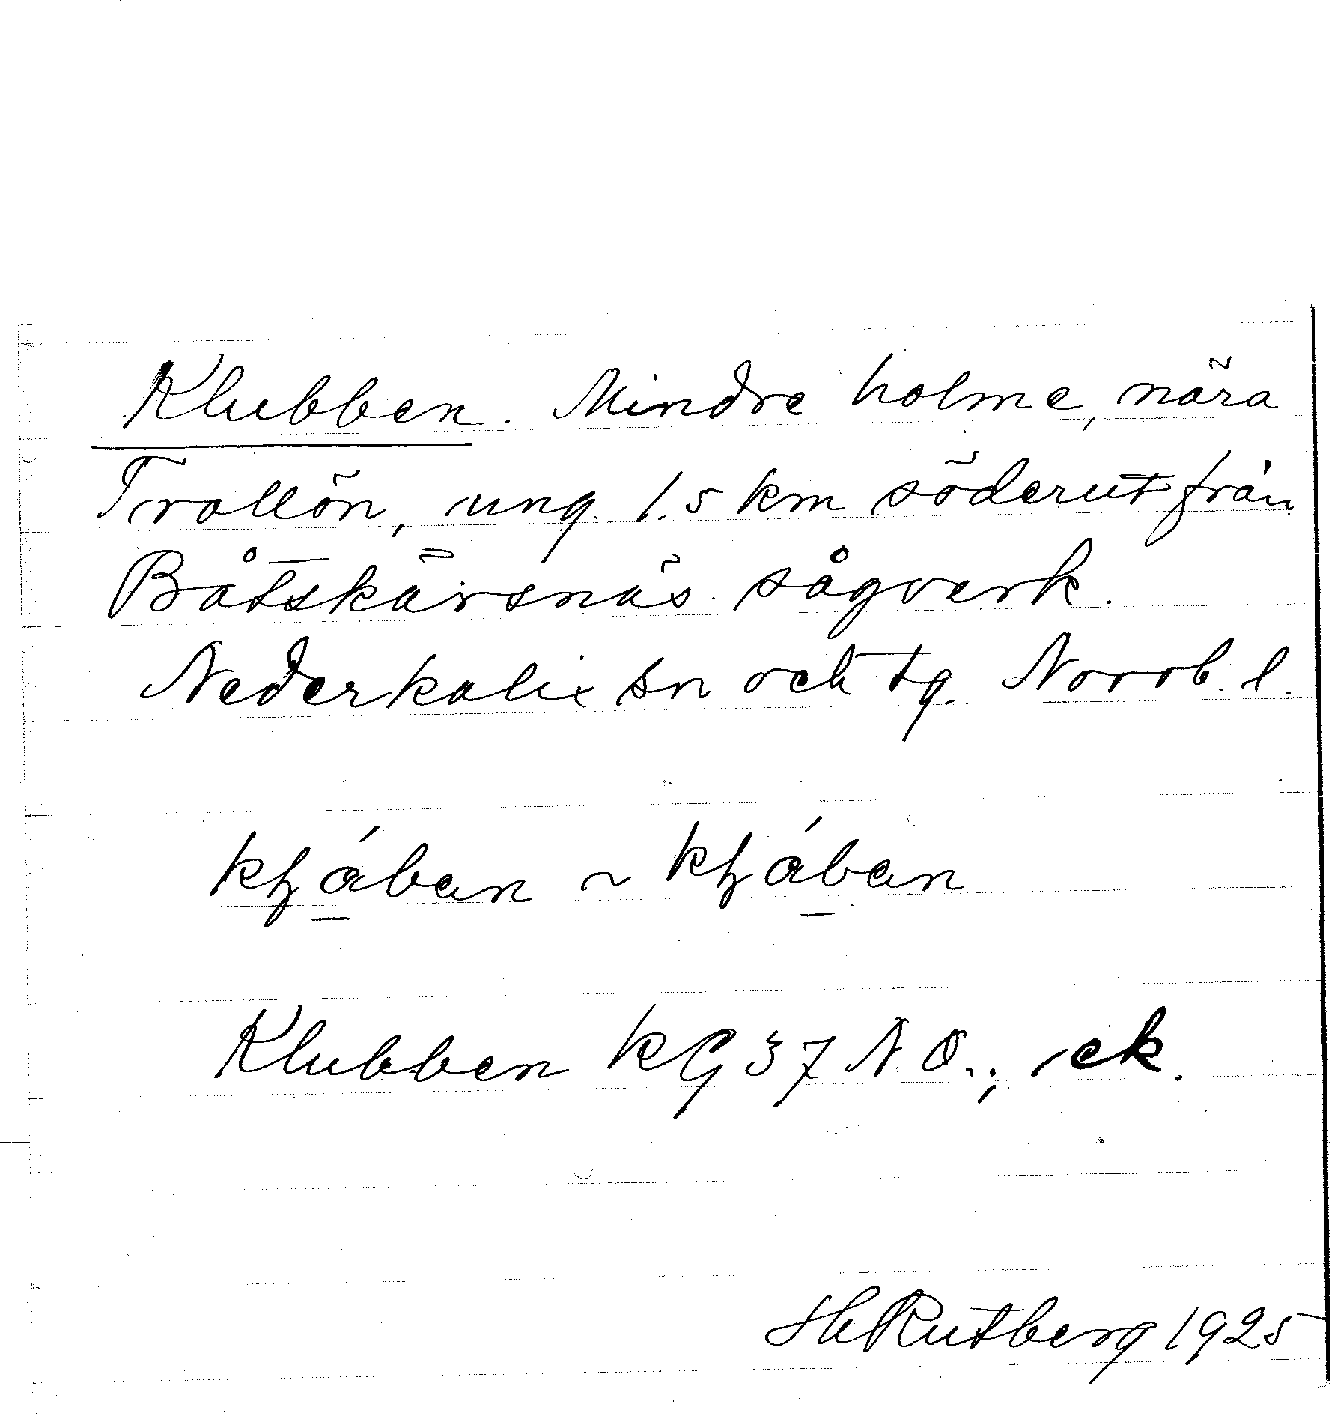 Klubben. Mindre holme, nära
Trollön, ung. 1.5 km söderut från
Båtskärsnäs sågverk.
Nederkalix sn och tg. Norrb. l.
Klubben KG 37 N.O.; ek.
HRutberg 1925